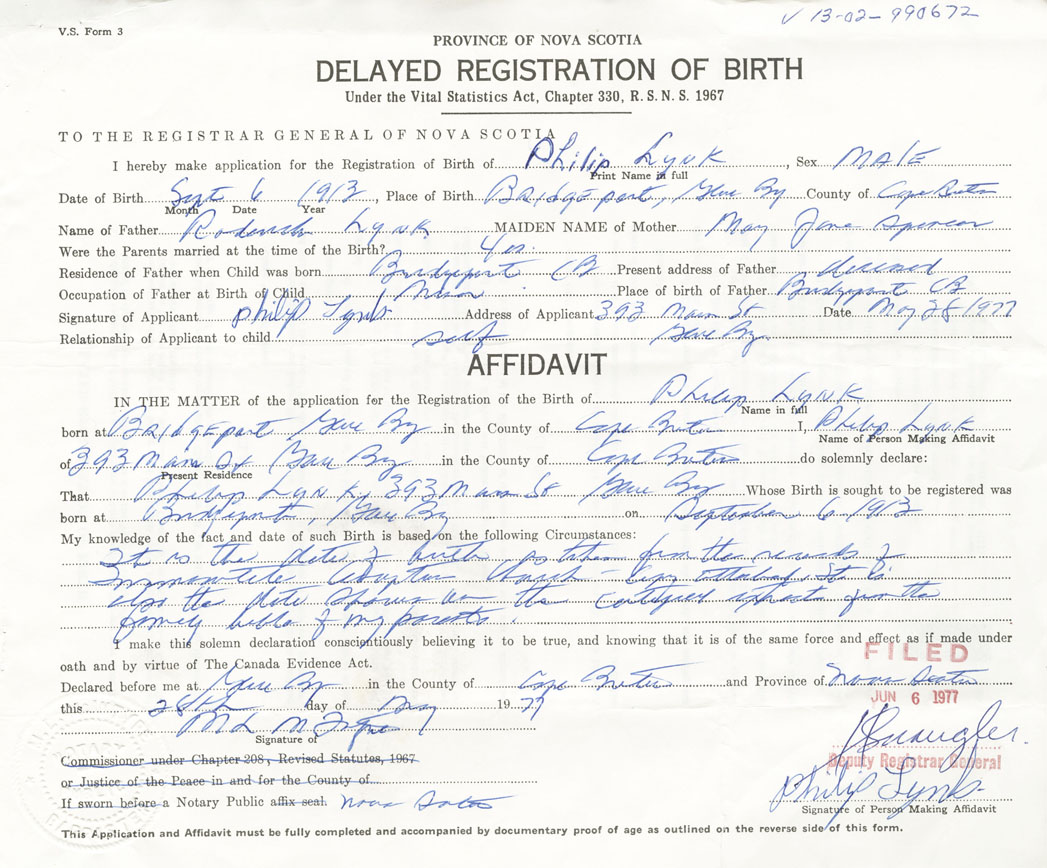 V 13-02-990672
V.S. Form 3
PROVINCE OF NOVA SCOTIA
DELAYED REGISTRATION OF BIRTH
Under the Vital Statistics Act, Chapter 330, R.S.N.S. 1967
TO THE REGISTRAR GENERAL OF NOVA SCOTIA
I hereby make application for the Registration of Birth of Philip Lynk, Sex MALE
Print Name in full
Date of Birth Sept 6 1913, Place of Birth Bridgeport, Glace Bay County of Cape Breton
Month Date Year
Name of Father Roderick Lynk MAIDEN NAME of Mother May Jane Spencer
Were the Parents married at the time of the Birth? Yes
Residence of Father when Child was born Bridgeport CB Present address of Father deceased
Occupation of Father at Birth of Child Place of birth of Father Bridgeport CB
Signature of Applicant Philip Lynk Address of Applicant 393 Main St Date May 28 1977
Relationship of Applicant to child self Glace Bay
AFFIDAVIT
IN THE MATTER of the application for the Registration of the Birth of Philip Lynk
Name in full
born at Bridgeport Glace Bay in the County of Cape Breton I, Philip Lynk
Name of Person Making Affidavit
of 393 Main St Glace Bay in the County of Cape Breton do solemnly declare:
Present Residence
That Philip Lynk, 393 Main St Glace Bay Whose Birth is sought to be registered was
born at Bridgeport, Glace Bay on September 6 1913
My knowledge of the fact and date of such Birth is based on the following Circumstances:
It is the date of birth as taken from the records of
Baptist Church - attached. It is
also the date shown in the certified extract from the
family bible of my parents.
I make this solemn declaration conscientiously believing it to be true, and knowing that it is of the same force and effect as if made under
oath and by virtue of The Canada Evidence Act.
FILED
Declared before me at Glace Bay in the County of Cape Breton and Province of Nova Scotia
JUN 6 1977
this 28th day of May 1977
Signature of
Commissioner under Chapter 208, Revised Statutes, 1967
Deputy Registrar General
or Justice of the Peace in and for the County of
If sworn before a Notary Public affix seal. Nova Scotia
Philip Lynk
Signature of Person Making Affidavit
This Application and Affidavit must be fully completed and accompanied by documentary proof of age as outlined on the reverse side of this form.